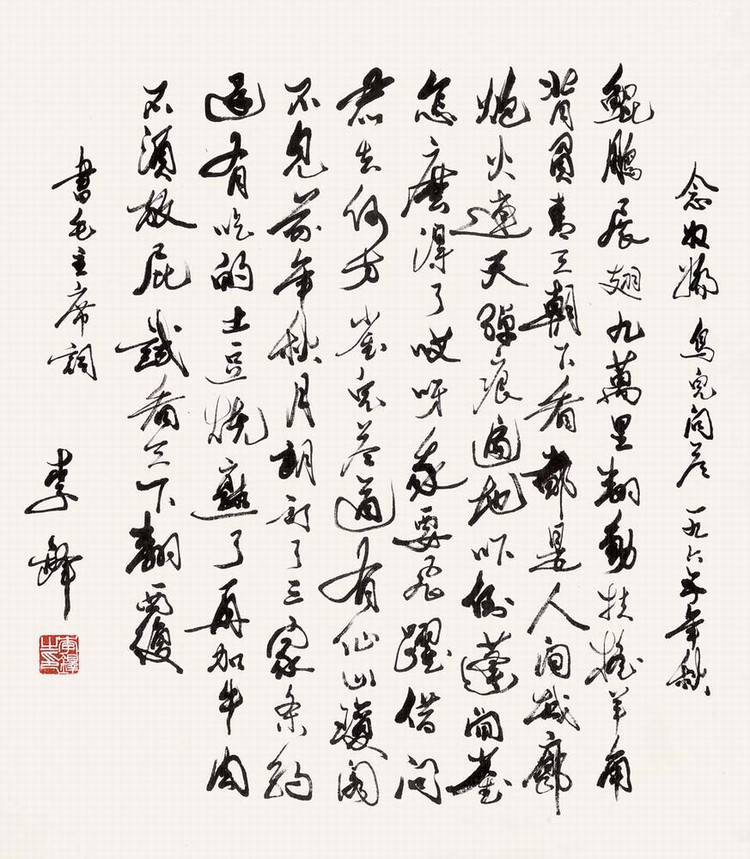 念奴嬌 鳥兒問答 一九六五年秋
鯤鵬展翅九萬里翻動扶搖羊角
背負青天朝下看都是人間城廓
炮火連天彈痕遍地吓倒蓬間雀
怎麼得了哎呀我要飛躍借問
君去何方雀兒答道有仙山瓊閣
不見前年秋月朗訂了三家条約
還有吃的土豆燒熟了再加牛肉
不須放屁試看天下翻覆
書毛主席詞
李鐸
李鐸之印